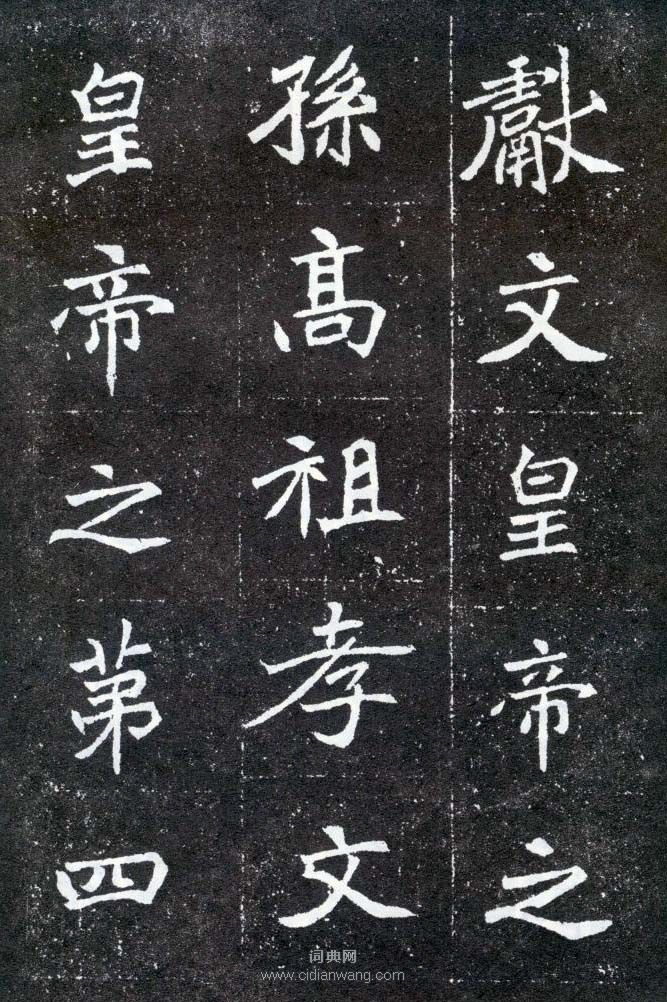 獻文皇帝之
孫高祖孝文
皇帝之第四
词典网
www.cidianwang.com